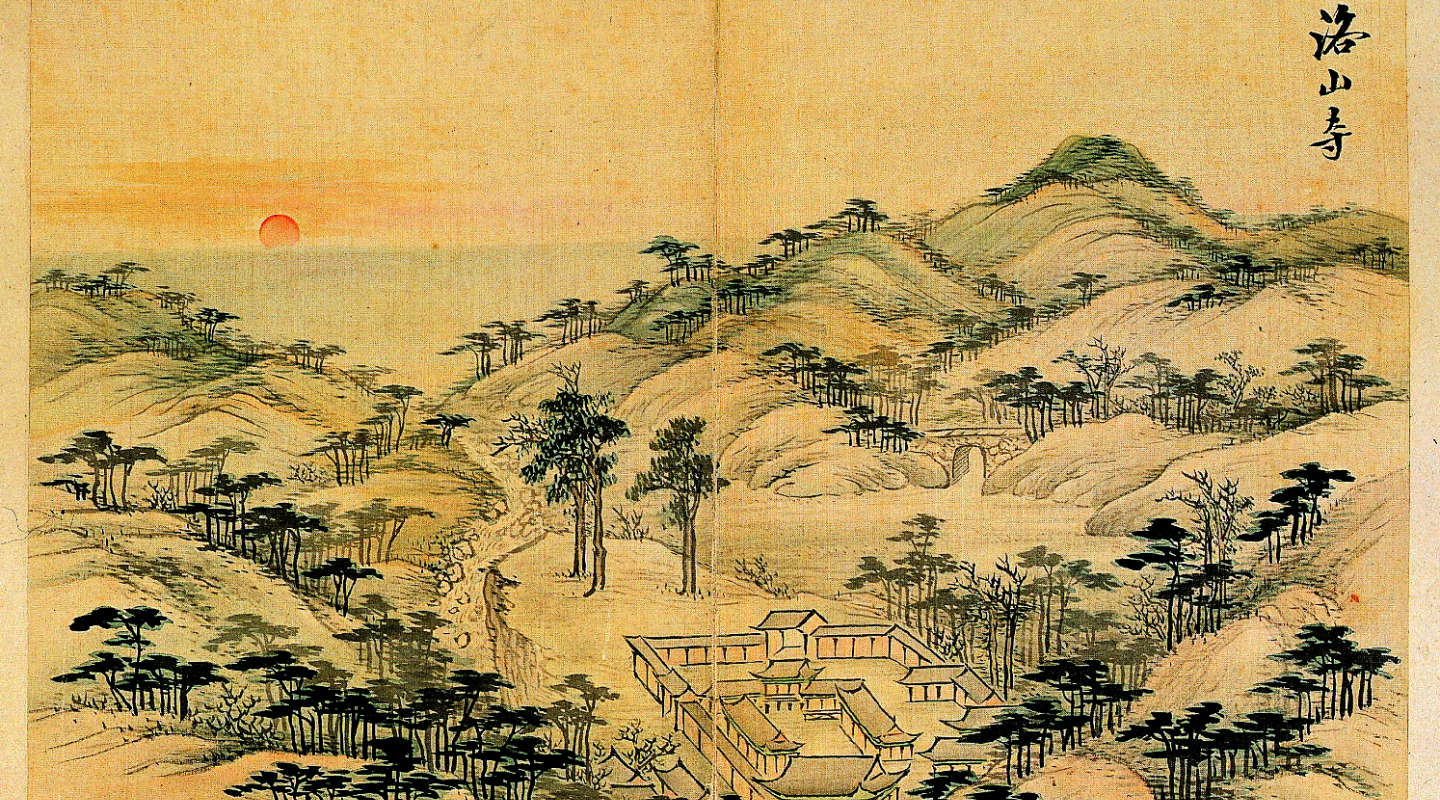 洛山寺